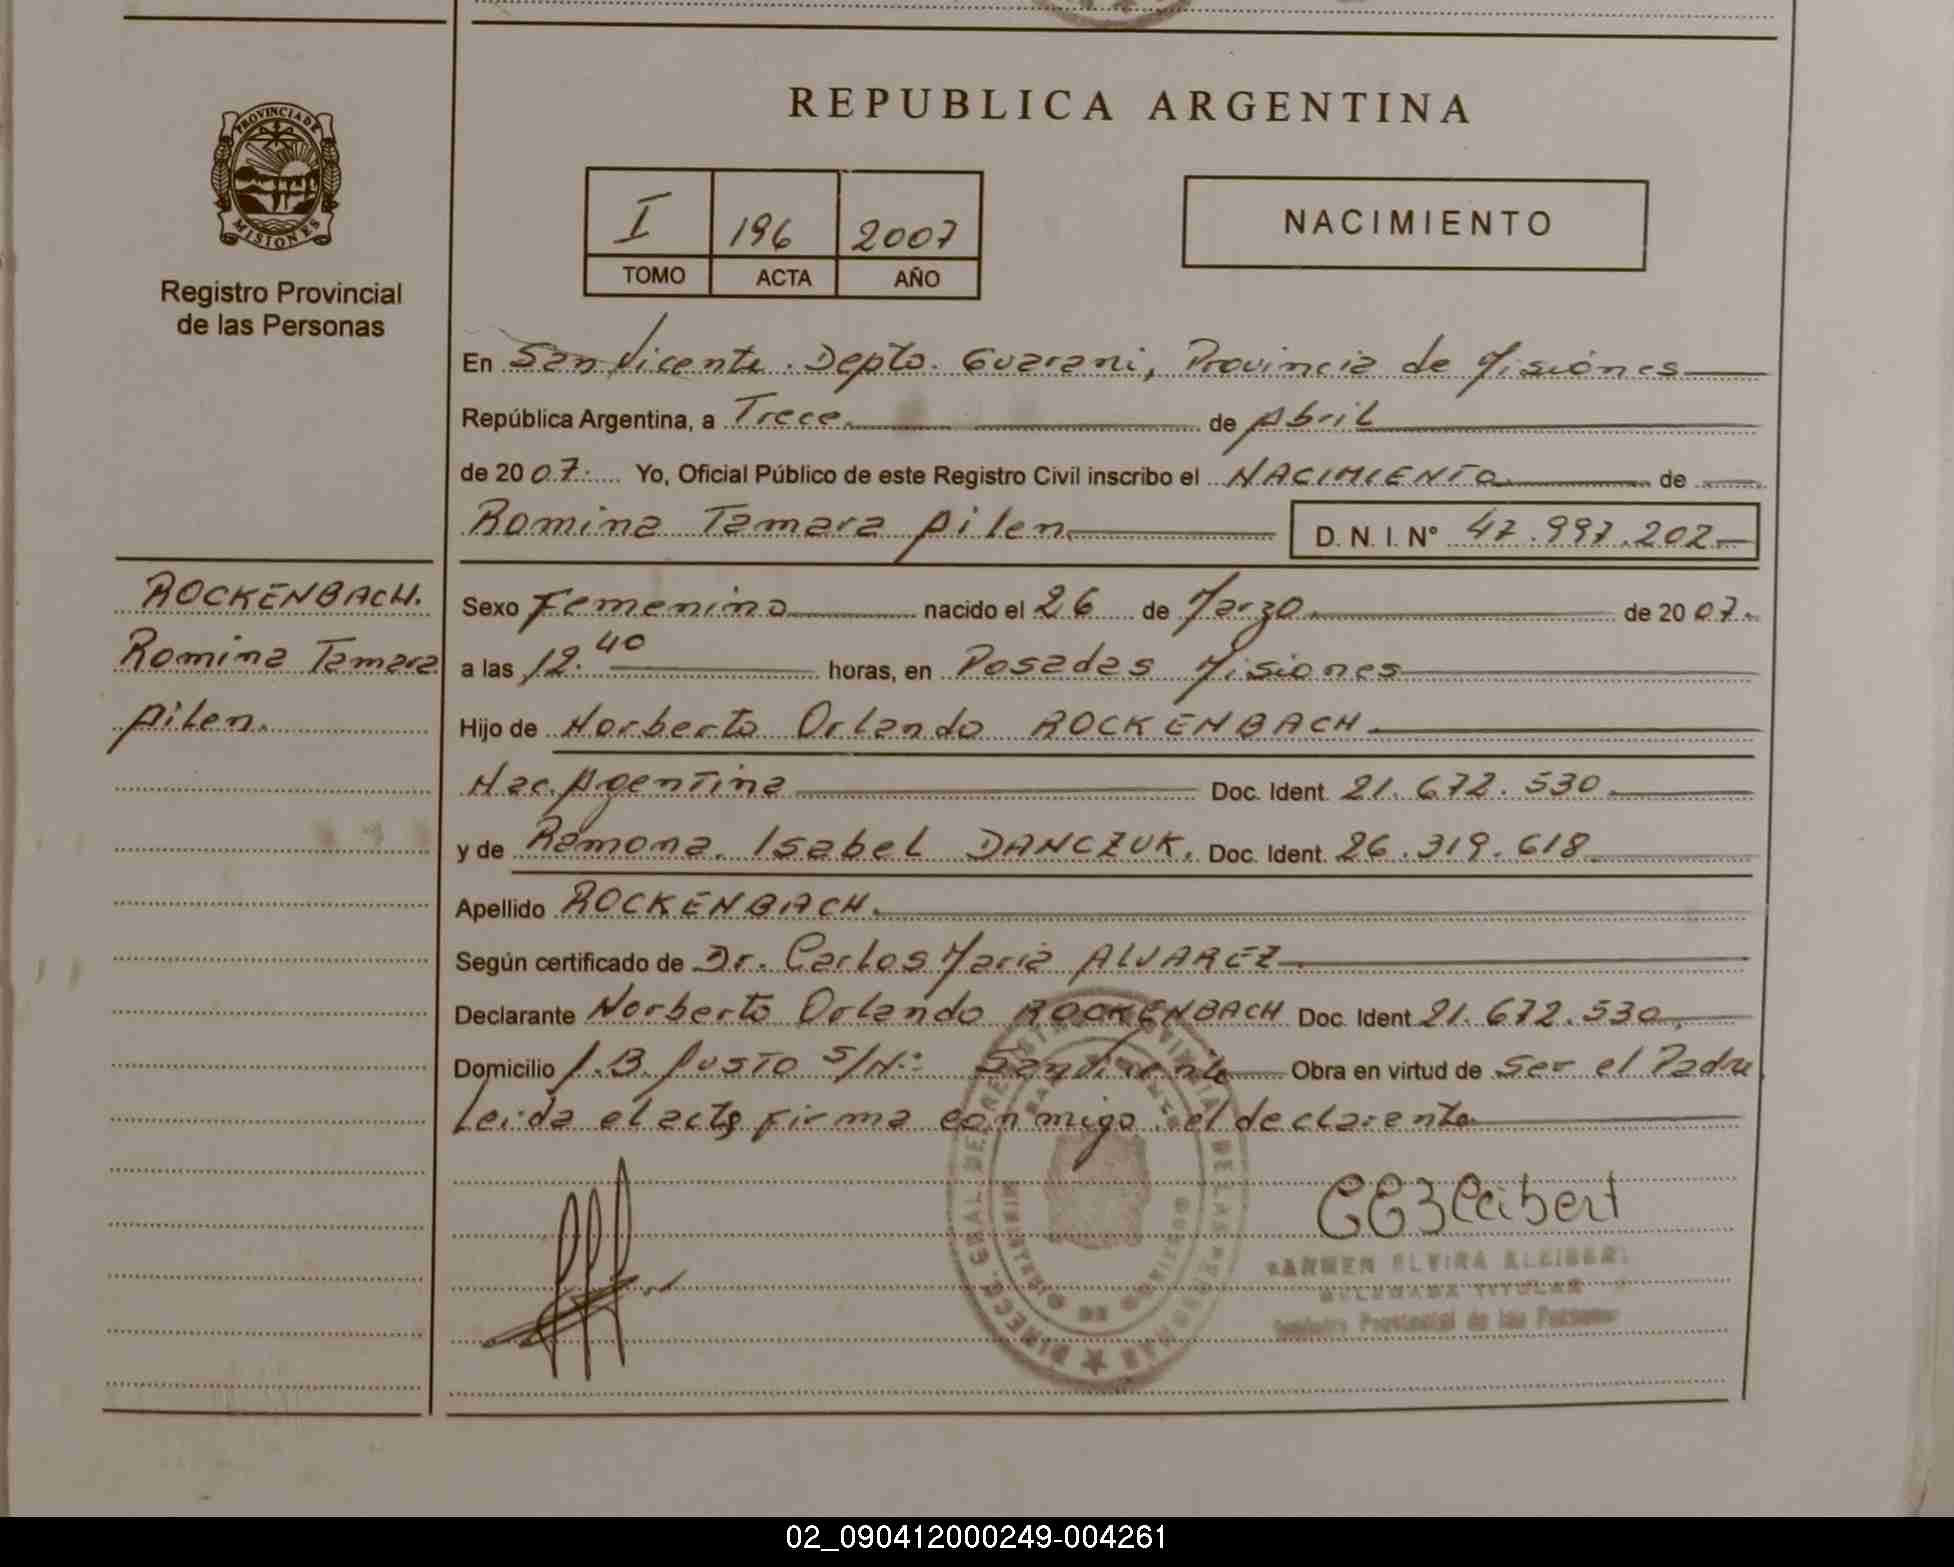 PROVINCIA DE
MISIONES
Registro Provincial
de las Personas
REPUBLICA ARGENTINA
I 196 2007
TOMO ACTA AÑO
NACIMIENTO
En San Vicente. Depto. Guarani, Provincia de Misiones
República Argentina, a Trece de Abril
de 2007. Yo, Oficial Público de este Registro Civil inscribo el NACIMIENTO de
Romina Tamara Ailen D. N. I. Nº 47.997.202
ROCKENBACH.
Romina Tamara
Ailen.
Sexo Femenino nacido el 26 de Marzo de 2007.
a las 12.40 horas, en Posadas Misiones
Hijo de Norberto Orlando ROCKENBACH
Nac. Agentina Doc. Ident. 21.672.530
y de Ramona Isabel DANCZUK. Doc. Ident. 26.319.618
Apellido ROCKENBACH.
Según certificado de Dr. Carlos Maria ALVAREZ
Declarante Norberto Orlando ROCKENBACH Doc. Ident 21.672.530
Domicilio J.B. Justo S/N: San Vicente Obra en virtud de ser el Padre
Leida el acta firma conmigo el declarante
CARMEN ELVIRA KLEIBERT
DELEGADA TITULAR
Provincial de las Personas
02_090412000249-004261